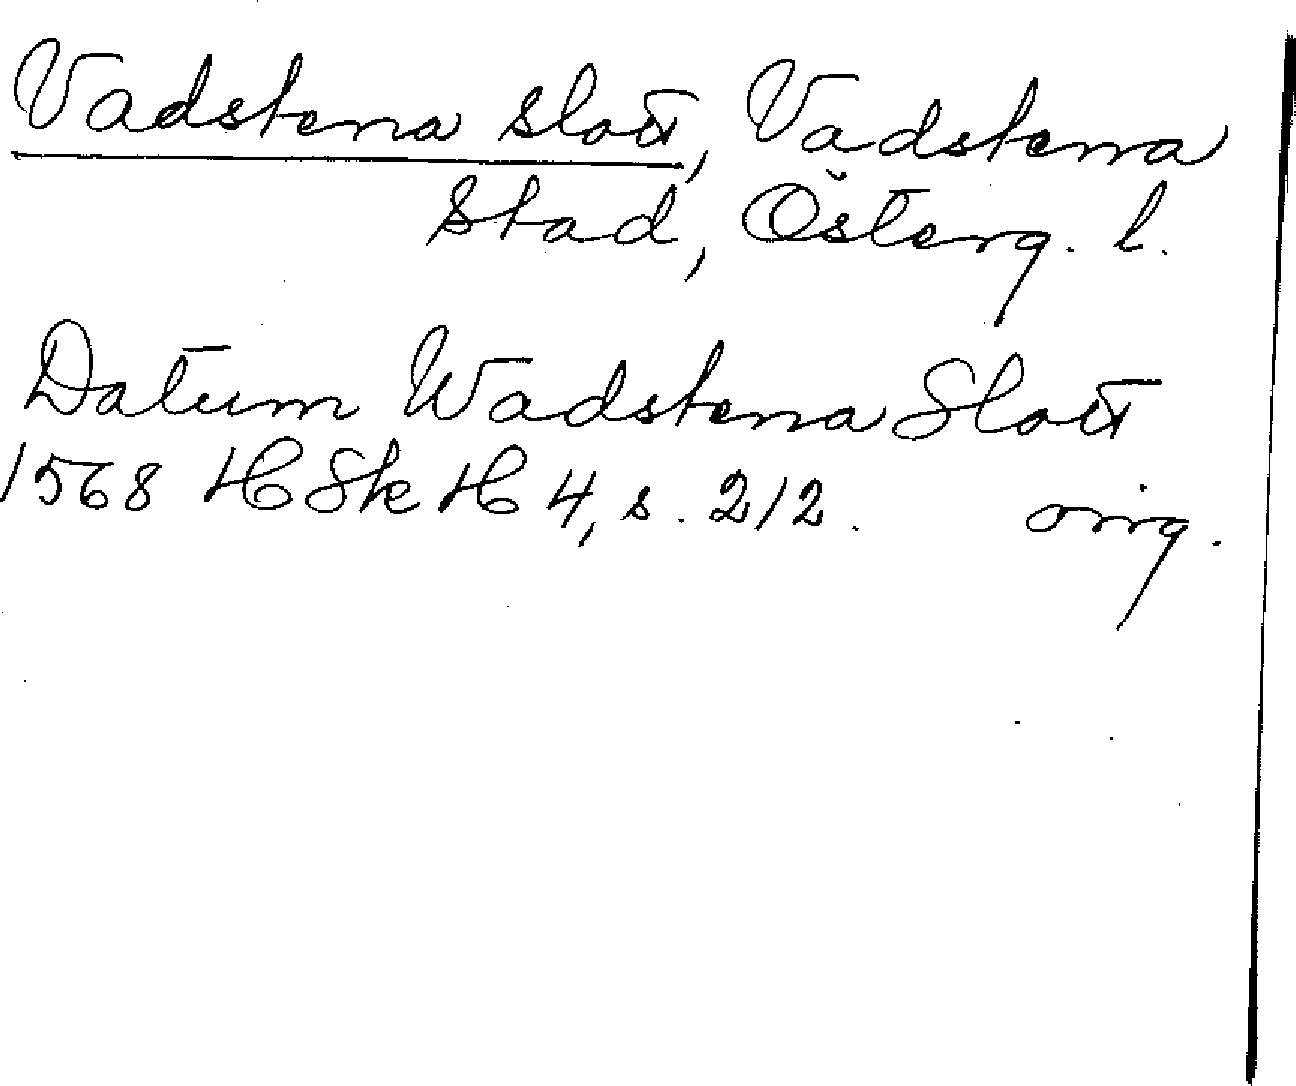 Vadstena slott, Vadstena
stad, Österg. l.
Datum Wadstena Slott
1568 HSkH 4, s. 212. orig.